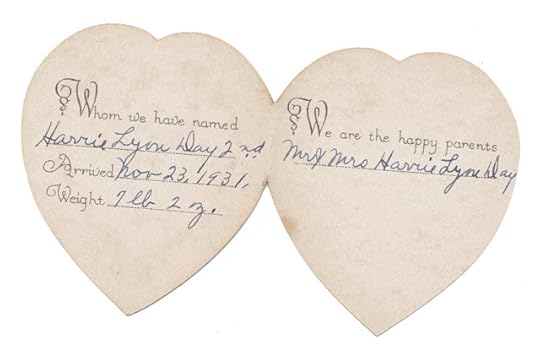 Whom we have named
Harrie Lynn Day 2nd
Arrived Nov 23, 1931,
Weight 7 lb 2 z.
We are the happy parents
Mr & Mrs Harrie Lynn Day